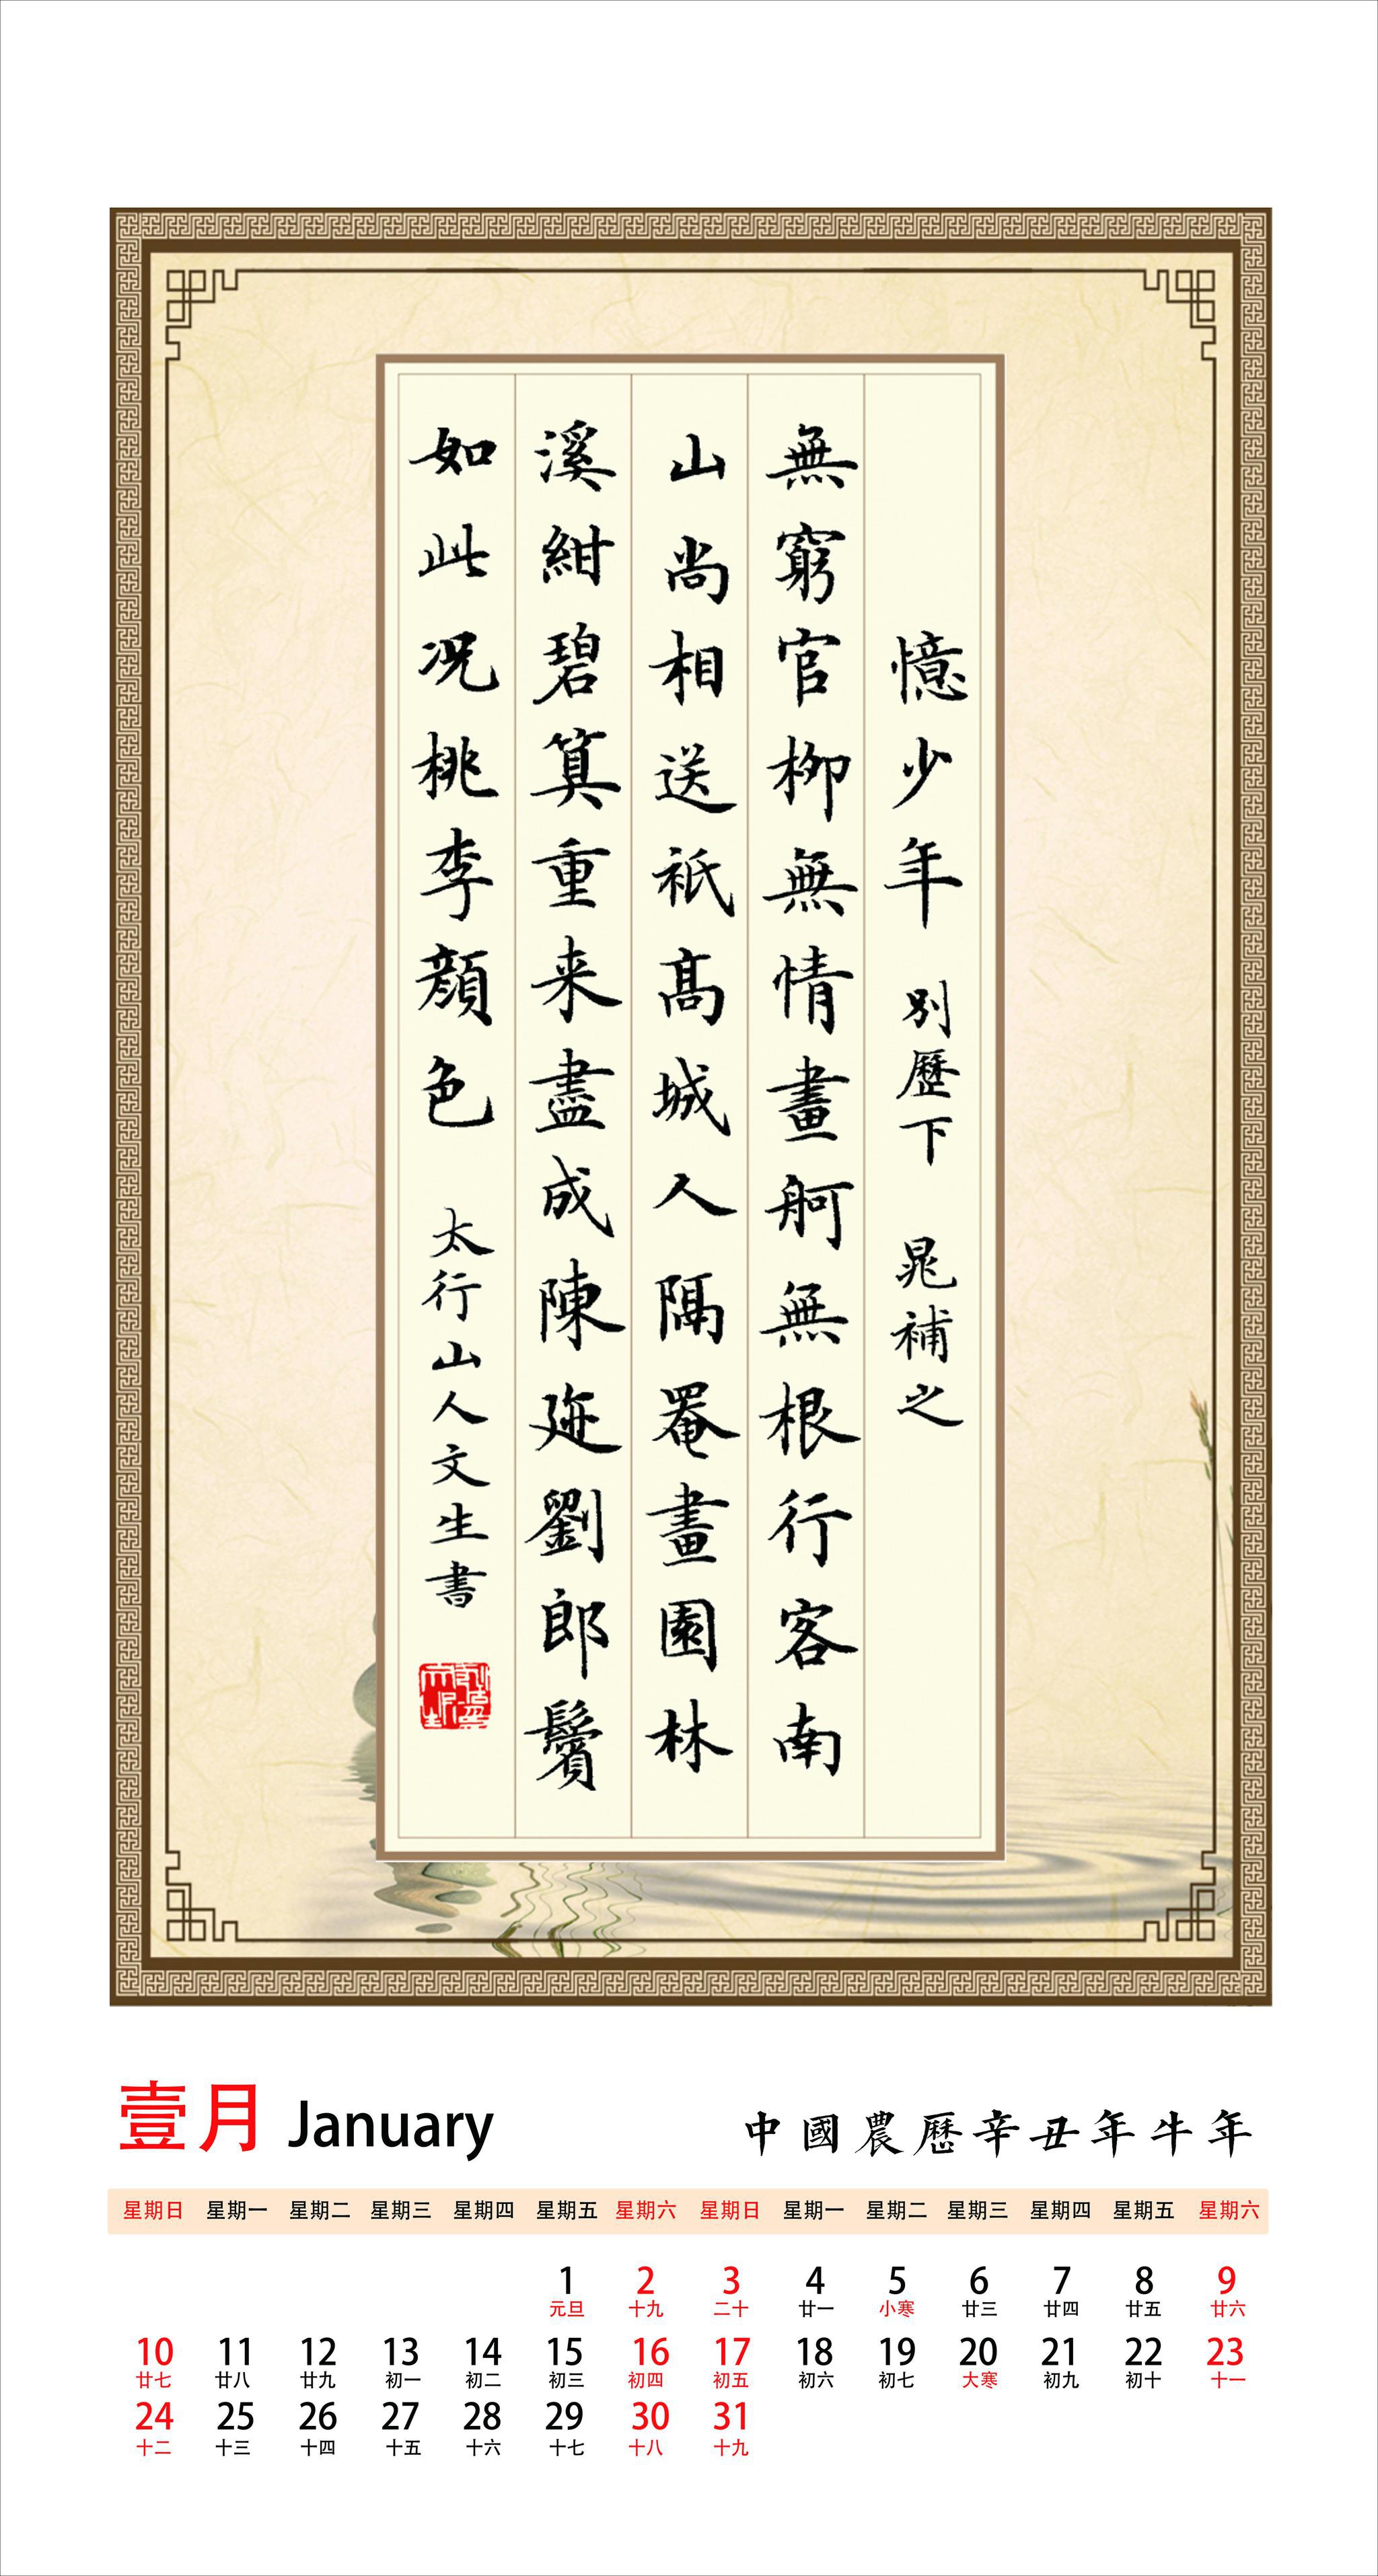 憶少年 別歷下 晁補之
無窮官柳無情畫舸無根行客南
山尚相送祇髙城人隔罨畫園林
溪紺碧算重来盡成陳迹劉郎鬢
如此况桃李顔色 太行山人文生書
壹月 January 中國農歷辛丑年牛年
星期日 星期一 星期二 星期三 星期四 星期五 星期六 星期日 星期一 星期二 星期三 星期四 星期五 星期六
1 2 3 4 5 6 7 8 9
元旦 十九 二十 廿一 小寒 廿三 廿四 廿五 廿六
10 11 12 13 14 15 16 17 18 19 20 21 22 23
廿七 廿八 廿九 初一 初二 初三 初四 初五 初六 初七 大寒 初九 初十 十一
24 25 26 27 28 29 30 31
十二 十三 十四 十五 十六 十七 十八 十九